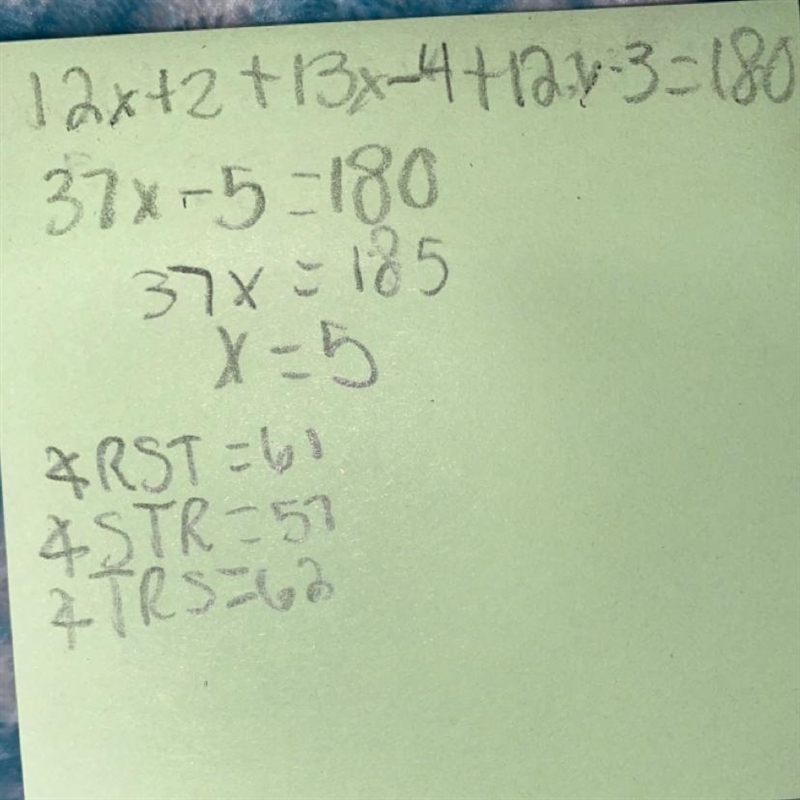 12x+2+13x-4+12x-3=180
37x-5=180
37x=185
x=5
∡RST=61
∡STR=57
∡TRS=62